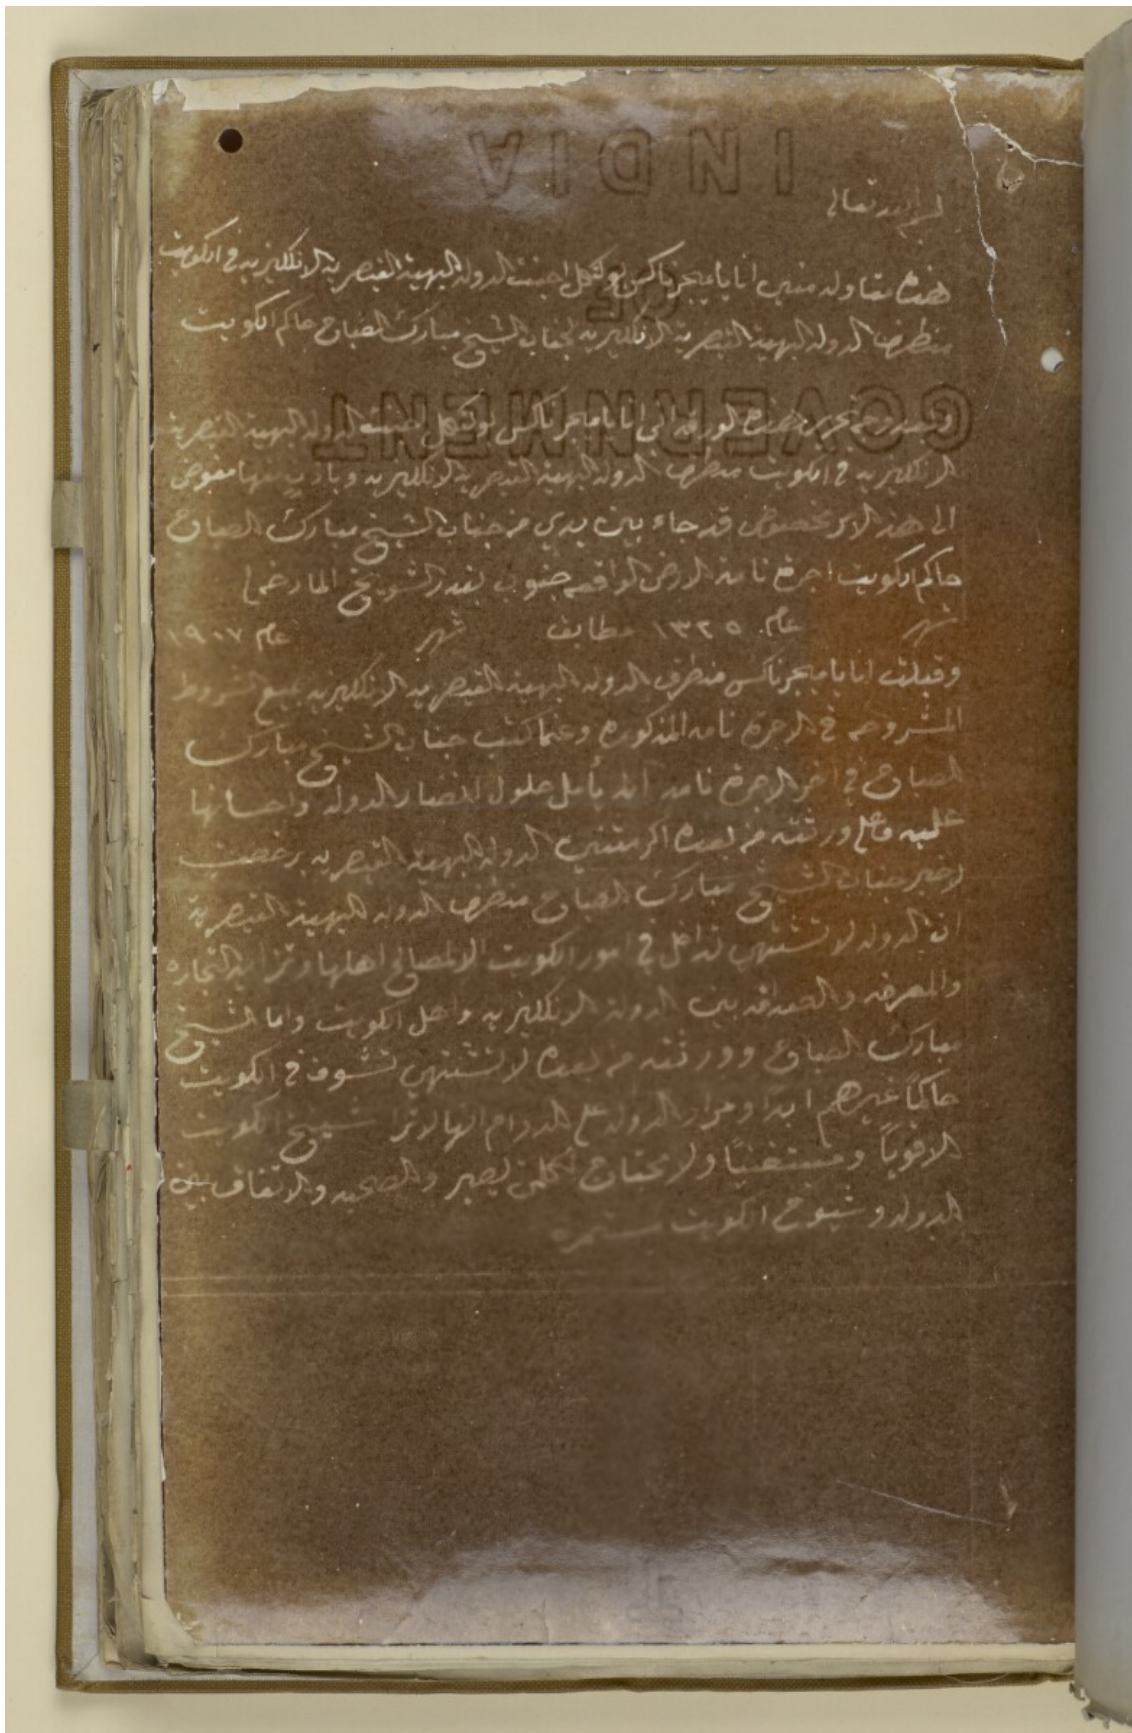 INDIA
بسم الله تعالى
هذه مقاوله منى انا يا ميجر ناكس بولتكل اجنت الدوله البهية القيصريه الانكليزيه في الكويت
منطرف الدوله البهية القيصرية الانكليزيه لجناب الشيخ مبارك الصباح حاكم الكويت
OF
GOVERNMENT
تحرير هذه الورقه انا يا ميجر ناكس بولتكل اجنت الدوله البهية القيصرية
الانكليزيه في الكويت منطرف الدوله البهية القيصريه الانكليزيه مفوض
الى هذا الامر مخصوص قد جاء بين يدي من جناب الشيخ مبارك الصباح
حاكم الكويت اجرة نامة الارض الواقعه جنوبي بندر الشويخ
شهر عام ١٣٢٥ مطابق شهر عام ١٩٠٧
وقبلت انا يا ميجر ناكس منطرف الدوله البهية القيصريه الانكليزيه جميع الشروط
المشروحه في الاجرة نامه المذكوره وعنما كتب جناب الشيخ مبارك
الصباح في اخر الاجرة نامه انه يأمل حلول انضار الدوله واحسانها
عليه وعلى ورثته من بعده الدوله البهية القيصريه رخصت
لاخبر جناب الشيخ مبارك الصباح منطرف الدوله البهية القيصرية
ان الدوله لا تشتهي تداخل في امور الكويت الا لمصالح اهلها وتزايد التجاره
والمعرفه والصداقه بين الدولة الانكليزيه واهل الكويت واما الشيخ
مبارك الصباح وورثته من بعده لا تشتهي تشوف في الكويت
حاكماً غيرهم ابدا ومراد الدوله على الدوام انها لا ترا شيوخ الكويت
الا قوياً ومستغنياً ولا محتاج لكلمن يصير والصحبه والاتفاق بين
الدوله وشيوخ الكويت مستمره